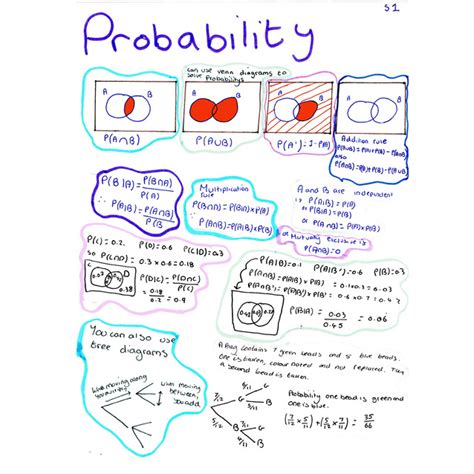 S1
Probability
Can use venn diagrams to
solve Probabilitys
A B
A B
A B
A B
P(A∩B)
P(A∪B)
P(A') = 1 - P(A)
Addition rule
P(A∪B) = P(A) + P(B) - P(A∩B)
also
P(A∩B) = P(A) + P(B) - P(A∪B)
P(B|A) = P(B∩A)
P(A)
P(A|B) = P(A∩B)
P(B
Multiplication
rule
A and B are independent
if P(A|B) = P(A)
or P(B|A) = P(B)
or P(A∩B) = P(A) × P(B)
or Mutually exclusive is
P(A∩B) = 0
P(C) = 0.2. P(D) = 0.6 P(C|D) = 0.3
so P(C∩D) = 0.3 × 0.6 = 0.18
C D
P(D|C) = P(D∩C)
P(C)
= 0.18 = 0.9
0.2
P(A|B) = 0.1 P(A|B') = 0.6 P(B) = 0.3
P(A∩B) = P(A|B) × P(B) = 0.1 × 0.3 = 0.03
P(A∩B') = P(A|B') × P(B') = 0.6 × 0.7 = 0.42
P(B|A) = 0.03 = 0.06
0.45
You can also use
tree diagrams
When moving along
you multiply
When moving
between,
you add.
A Bag contains 7 green beads and 5 blue beads.
one is taken, colour noted and not replaced. Then
a second bead is taken.
7/12 G 6/11 G
5/11 B
5/12 B 7/11 G
4/11 B
Probability one bead is green and
one is blue.
(7/12 × 5/11) + (5/12 × 7/11) = 35/66